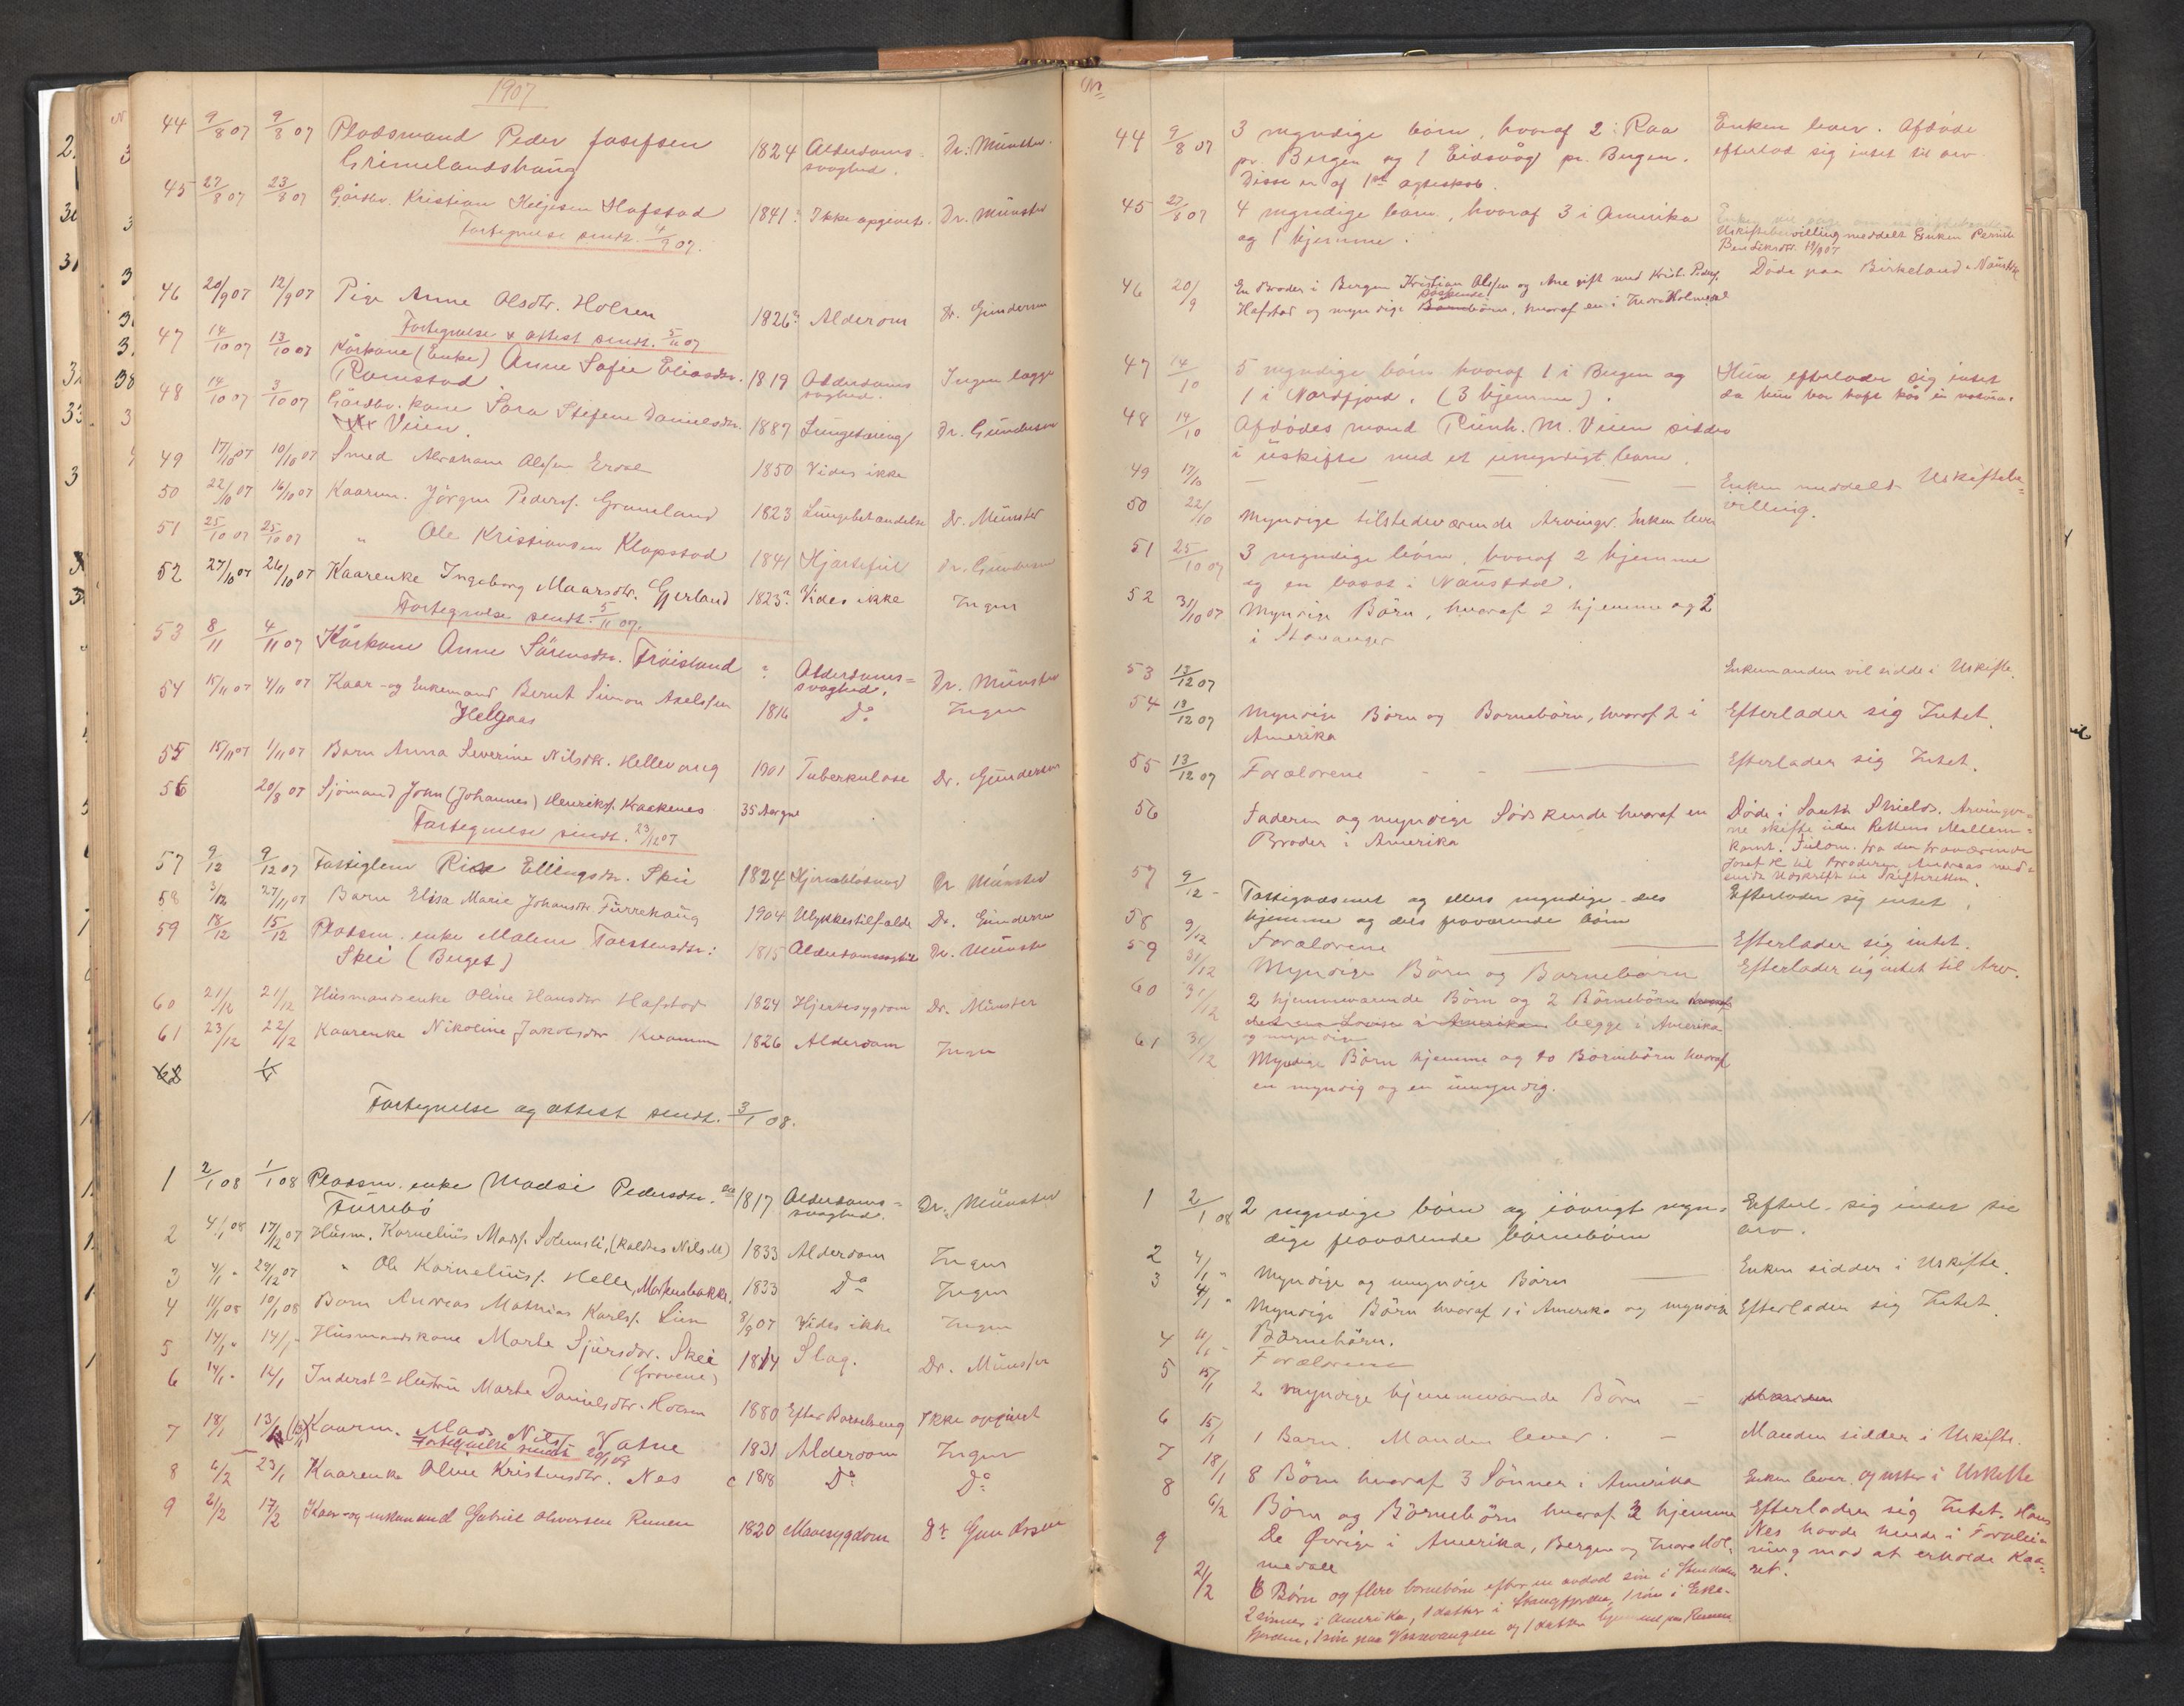 1907
44 9/8 07 9/8 07 Pladsmand Peder Josefsen 1824 Alderdoms= Dr. Münster.
Grimelandshaug svaghed.
45 27/8 07 23/8 07 Gårdbr. Kristian Helgesen Hafstad 1841? Ikke opgivet. Dr. Münster
Fortegnelse sendt. 4/9 07.
46 20/9 07 12/9 07 Pige Anne Olsdtr. Holsen 1826? Alderdom Dr. Gundersen
Fortegnelse & attest sendt. 5/11 07
47 14/10 07 13/10 07 Kårkone (Enke) Anne Sofie Eliasdtr. 1819 Alderdoms Ingen læge
Ramstad svaghed.
48 14/10 07 3/10 07 Gårdbr. kone Sara Stefine Danielsdtr. 1887 Lungetæring Dr. Gundersen
Vien.
49 17/10 07 10/10 07 Smed Abraham Olsen Erdal 1850 Vides ikke
50 22/10 07 16/10 07 Kaarm. Jörgen Peders. Gruneland 1823 Lungebetændelse Dr. Münster
51 25/10 07 25/10 07 " Ole Kristiansen Klopstad 1841 Hjertefeil Dr. Gundersen
52 27/10 07 26/10 07 Kaarenke Ingeborg Maarsdtr. Gjerland 1823? Vides ikke Ingen
Fortegnelse sendt. 5/11 07.
53 8/11 4/11 07 Kårkone Anne Sörensdtr. Fröisland " Alderdoms= Dr. Münster
svaghed.
54 15/11 07 4/11 07 Kaar- og Enkemand Bernt Simon Axelssen 1816 Do Ingen
Helgaas
55 15/11 07 1/11 07 Barn Anna Severine Nilsdtr. Hellevang 1901 Tuberkulose Dr. Gundersen
56 20/8 07 Sjömand John (Johannes) Henriks. Kraakenes 35 Aar gml
Fortegnelse sendt. 23/12 07
57 9/12 9/12 07 Fattiglem Ellingsdtr. Skei 1824 Hjerneblødning Dr Münster
58 3/12 27/11 07 Barn Elisa Marie Johansdtr. Furrehaug 1904 Ulykkestilfælde Dr. Gundersen
59 18/12 15/12 Pladsm. enke Malene Torstensdtr. 1815 Alderdomssvaghed Dr. Münster
Skei (Berget)
60 21/12 21/12 Husmandsenke Oline Hansdtr Hafstad 1824 Hjertesygdom Dr. Münster
61 23/12 22/12 Kaarenke Nikoline Jakobsdtr Kvamme 1826 Alderdom Ingen
62
Fortegnelse og attest sendt. 3/1 08.
1 2/1 08 1/1 08 Pladsm. enke Madsi Pedersdtr. 1817 Alderdoms= Dr. Münster
Furebö svaghed.
2 4/1 08 17/12 07 Husm. Kornelius Mads. Solemsli, (kaldtes Nils M) 1833 Alderdom Ingen
3 4/1 " 29/12 07 " Ole Kornelius. Helle, Markusbakke. 1833 Do Ingen
4 11/1 08 10/1 08 Barn Andreas Mathias Karls. Lien 8/9 07 Vides ikke Ingen
5 14/1 " 14/1 " Husmandskone Marte Sjursdtr. Skei 1814 Slag. Dr. Münster
(Grovene)
6 14/1 " 14/1 Inderst Hustru Marte Danielsdtr. Holsen 1880 Efter Barselseng Ikke opgivet
7 18/1 13/1 Kaarm. Mads Nils. Vatne 1831 Alderdom Ingen
Fortegnelse sendt
8 6/2 23/1 Kaarenke Oline Kristensdtr. Nes c 1818 Do Do
9 21/2 17/2 Kaar- og enkemand Gabriel Oliversen Rumen 1820 Mavesygdom Dr Gundersen
No
44 9/8 07 3 myndige börn, hvoraf 2 i Raa Enken lever. Afdöde
pr. Bergen og 1 Eidsvåg pr. Bergen. efterlod sig intet til arv
Disse er af 1ste ægteskab.
45 27/8 07 4 myndige börn, hvoraf 3 i Amerika
og 1 hjemme. Uskiftebevilling meddelt Enken Pernille
Bendiksdtr. 19/9 07
46 20/9 En Broder i Bergen Kristian Olsen og Ane gift med Krist. Peders. Døde paa Birkeland i Naustdal
Hafstad og myndige Söskendebörn, hvoraf en i Indre Holmedal
47 14/10 5 myndige börn hvoraf 1 i Bergen og Hun efterlader sig intet
1 i Nordfjord. (3 hjemme). da hun har havt kår in natura.
48 14/10 Afdödes mand Rünh. M. Vien sidder
i uskifte med et umyndigt barn.
49 17/10 — — — — — Enken meddelt Uskiftebe=
50 22/10 Myndige tilstedeværende Arvinger. Enken lever villing.
51 25/10 07 3 myndige börn, hvoraf 2 hjemme
og en bosat i Naustdal.
52 31/10 07 Myndige Börn, hvoraf 2 hjemme og 2
i Stavanger
53 13/12 07 Enkemanden vil sidde i Uskifte.
54 13/12 07 Myndige Börn og Barnebörn, hvoraf 2 i Efterlader sig Intet.
Amerika
55 13/12 07 Forældrene — Efterlader sig Intet.
56 Faderen og myndige Södskende hvoraf en Døde i South Shields. Arvinger=
Broder i Amerika ne skifte uden Rettens Mellem=
komst. Fuldm. fra den fraværende
Josef H til Broderen Andreas med=
sendt Udskrift til Skifteretten.
57 9/12 Fattigvæsenet og ellers myndige dels Efterlader sig intet.
hjemme og dels fraværende börn
58 9/12 Forældrene — Efterlader sig intet.
59 31/12 Myndige Börn og Barnebörn Efterlader sig intet til Arv.
60 31/12 2 hjemmeværende Börn og 2 Börnebörn hvoraf
begge i Amerika
og myndige
61 31/12 Myndige Börn hjemme og to Börnebörn hvoraf
en myndig og en umyndig.
1 2/1 08 2 myndige börn og iövrigt myn= Efterl. sig intet til
dige fraværende börnebörn arv.
2 4/1 " Myndige og umyndige Börn — Enken sidder i Uskifte.
3 4/1 " Myndige Börn hvoraf 1 i Amerika og myndige Efterlader sig Intet.
Börnebörn.
4 11/1 Forældrene
5 15/1 2 myndige hjemmeværende Börn —
6 15/1 1 Barn. Manden lever. — Manden sidder i Uskifte.
7 18/1 8 Börn hvoraf 3 Sönner i Amerika Enken lever. Og sitter i Uskifte
8 6/2 Börn og Börnebörn hvoraf 3 hjemme Efterlader sig Intet. Hans
De Øvrige i Amerika, Bergen og Indre Hol= Nes havde hende i Forplei=
medal ning mod at erholde Kaa=
ret.
9 21/2 6 Börn og flere barnebörn efter en avdöd sön i
2 sönner i Amerika, 1 datter i Stongfjorden, 1 sön i Eike=
fjorden, 1 sön paa Vossevangen og 1 datter hjemme paa Rumen